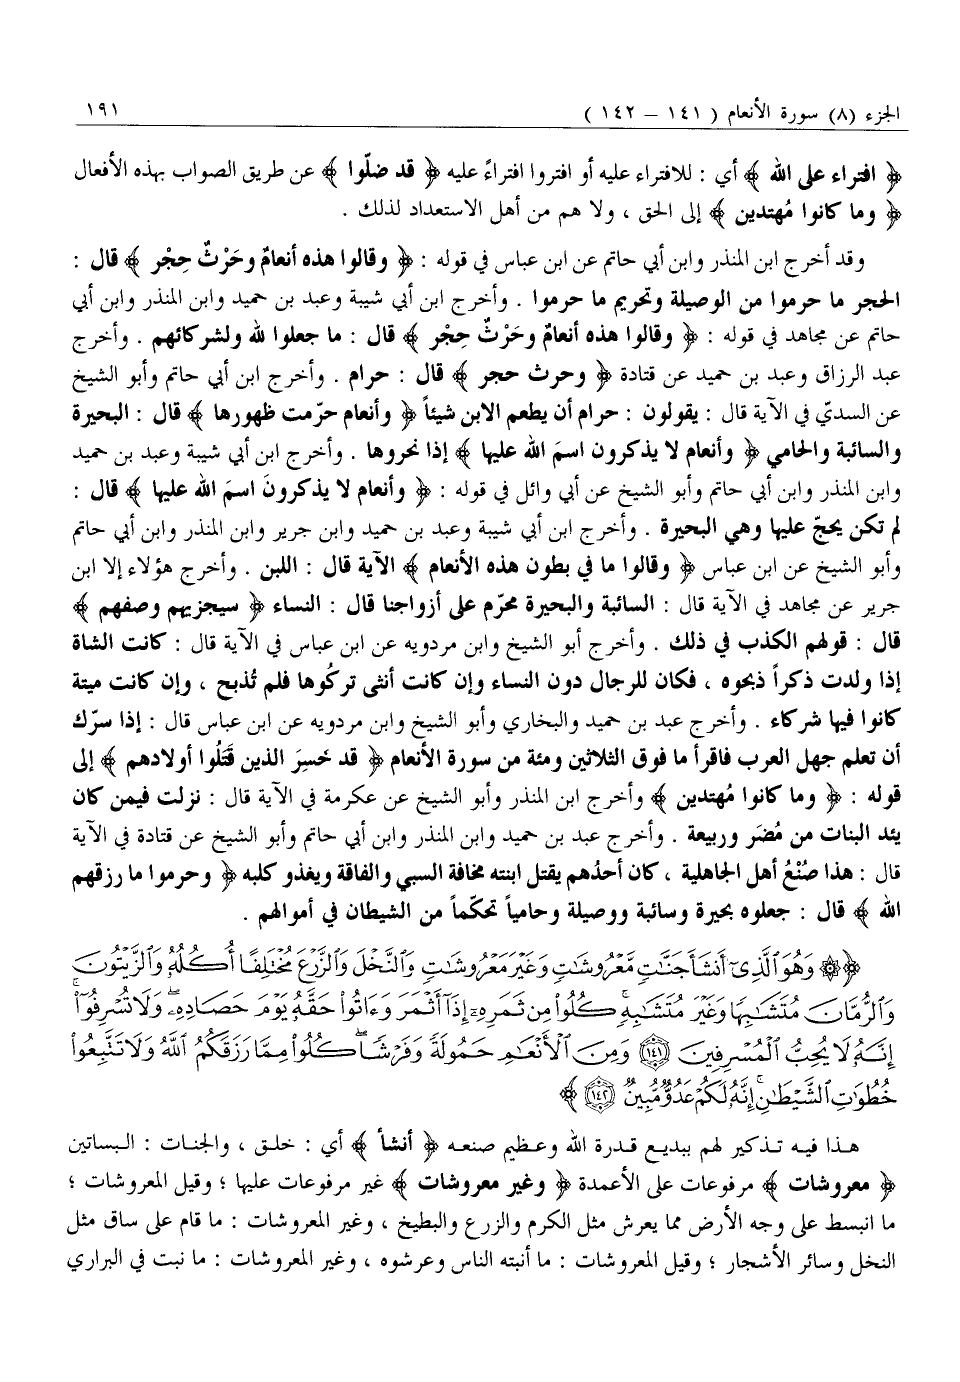 الجزء (٨) سورة الأنعام ( ١٤١ – ١٤٢ ) ١٩١
﴿ افتراء على الله ﴾ أي : للافتراء عليه أو افتروا افتراءً عليه ﴿ قد ضلّوا ﴾ عن طريق الصواب بهذه الأفعال
﴿ وما كانوا مُهتدين ﴾ إلى الحق ، ولا هم من أهل الاستعداد لذلك .
وقد أخرج ابن المنذر وابن أبي حاتم عن ابن عباس في قوله : ﴿ وقالوا هذه أنعامٌ وحَرْثٌ حِجْر ﴾ قال :
الحجر ما حرموا من الوصيلة وتحريم ما حرموا . وأخرج ابن أبي شيبة وعبد بن حميد وابن المنذر وابن أبي
حاتم عن مجاهد في قوله : ﴿ وقالوا هذه أنعامٌ وحَرْثٌ حِجْر ﴾ قال : ما جعلوا لله ولشركائهم . وأخرج
عبد الرزاق وعبد بن حميد عن قتادة ﴿ وحرث حجر ﴾ قال : حرام . وأخرج ابن أبي حاتم وأبو الشيخ
عن السديّ في الآية قال : يقولون : حرام أن يطعم الابن شيئاً ﴿ وأنعام حرّمت ظهورها ﴾ قال : البحيرة
والسائبة والحامي ﴿ وأنعام لا يذكرون اسمَ الله عليها ﴾ إذا نحروها . وأخرج ابن أبي شيبة وعبد بن حميد
وابن المنذر وابن أبي حاتم وأبو الشيخ عن أبي وائل في قوله : ﴿ وأنعام لا يذكرونَ اسمَ الله عليها ﴾ قال :
لم تكن يحجّ عليها وهي البحيرة . وأخرج ابن أبي شيبة وعبد بن حميد وابن جرير وابن المنذر وابن أبي حاتم
وأبو الشيخ عن ابن عباس ﴿ وقالوا ما في بطون هذه الأنعام ﴾ الآية قال : اللبن . وأخرج هؤلاء إلا ابن
جرير عن مجاهد في الآية قال : السائبة والبحيرة محرّم على أزواجنا قال : النساء ﴿ سيجزيهم وصفهم ﴾
قال : قولهم الكذب في ذلك . وأخرج أبو الشيخ وابن مردويه عن ابن عباس في الآية قال : كانت الشاة
إذا ولدت ذكراً ذبحوه ، فكان للرجال دون النساء وإن كانت أنثى تركُوها فلم تُذبح ، وإن كانت ميتة
كانوا فيها شركاء . وأخرج عبد بن حميد والبخاري وأبو الشيخ وابن مردويه عن ابن عباس قال : إذا سرّك
أن تعلم جهل العرب فاقرأ ما فوق الثلاثين ومئة من سورة الأنعام ﴿ قد خَسِرَ الذين قَتَلُوا أولادهم ﴾ إلى
قوله : ﴿ وما كانوا مُهتدين ﴾ وأخرج ابن المنذر وأبو الشيخ عن عكرمة في الآية قال : نزلت فيمن كان
يئد البنات من مُضَر وربيعة . وأخرج عبد بن حميد وابن المنذر وابن أبي حاتم وأبو الشيخ عن قتادة في الآية
قال : هذا صُنْعُ أهل الجاهلية ، كان أحدُهم يقتل ابنته مخافة السبي والفاقة ويغذو كلبه ﴿ وحرموا ما رزقهم
الله ﴾ قال : جعلوه بحيرة وسائبة ووصيلة وحامياً تحكّماً من الشيطان في أموالهم .
﴿ ۞ وَهُوَ ٱلَّذِىٓ أَنشَأَ جَنَّٰتٍ مَّعْرُوشَٰتٍ وَغَيْرَ مَعْرُوشَٰتٍ وَٱلنَّخْلَ وَٱلزَّرْعَ مُخْتَلِفًا أُكُلُهُۥ وَٱلزَّيْتُونَ
وَٱلرُّمَّانَ مُتَشَٰبِهًا وَغَيْرَ مُتَشَٰبِهٍ ۚ كُلُوا۟ مِن ثَمَرِهِۦٓ إِذَآ أَثْمَرَ وَءَاتُوا۟ حَقَّهُۥ يَوْمَ حَصَادِهِۦ ۖ وَلَا تُسْرِفُوٓا۟ ۚ
إِنَّهُۥ لَا يُحِبُّ ٱلْمُسْرِفِينَ ١٤١ وَمِنَ ٱلْأَنْعَٰمِ حَمُولَةً وَفَرْشًا ۚ كُلُوا۟ مِمَّا رَزَقَكُمُ ٱللَّهُ وَلَا تَتَّبِعُوا۟
خُطُوَٰتِ ٱلشَّيْطَٰنِ ۚ إِنَّهُۥ لَكُمْ عَدُوٌّ مُّبِينٌ ١٤٢ ﴾
هذا فيه تذكير لهم ببديع قدرة الله وعظيم صنعه ﴿ أنشأ ﴾ أي : خلق ، والجنات : البساتين
﴿ معروشات ﴾ مرفوعات على الأعمدة ﴿ وغير معروشات ﴾ غير مرفوعات عليها ؛ وقيل المعروشات :
ما انبسط على وجه الأرض مما يعرش مثل الكرم والزرع والبطيخ ، وغير المعروشات : ما قام على ساق مثل
النخل وسائر الأشجار ؛ وقيل المعروشات : ما أنبته الناس وعرشوه ، وغير المعروشات : ما نبت في البراري